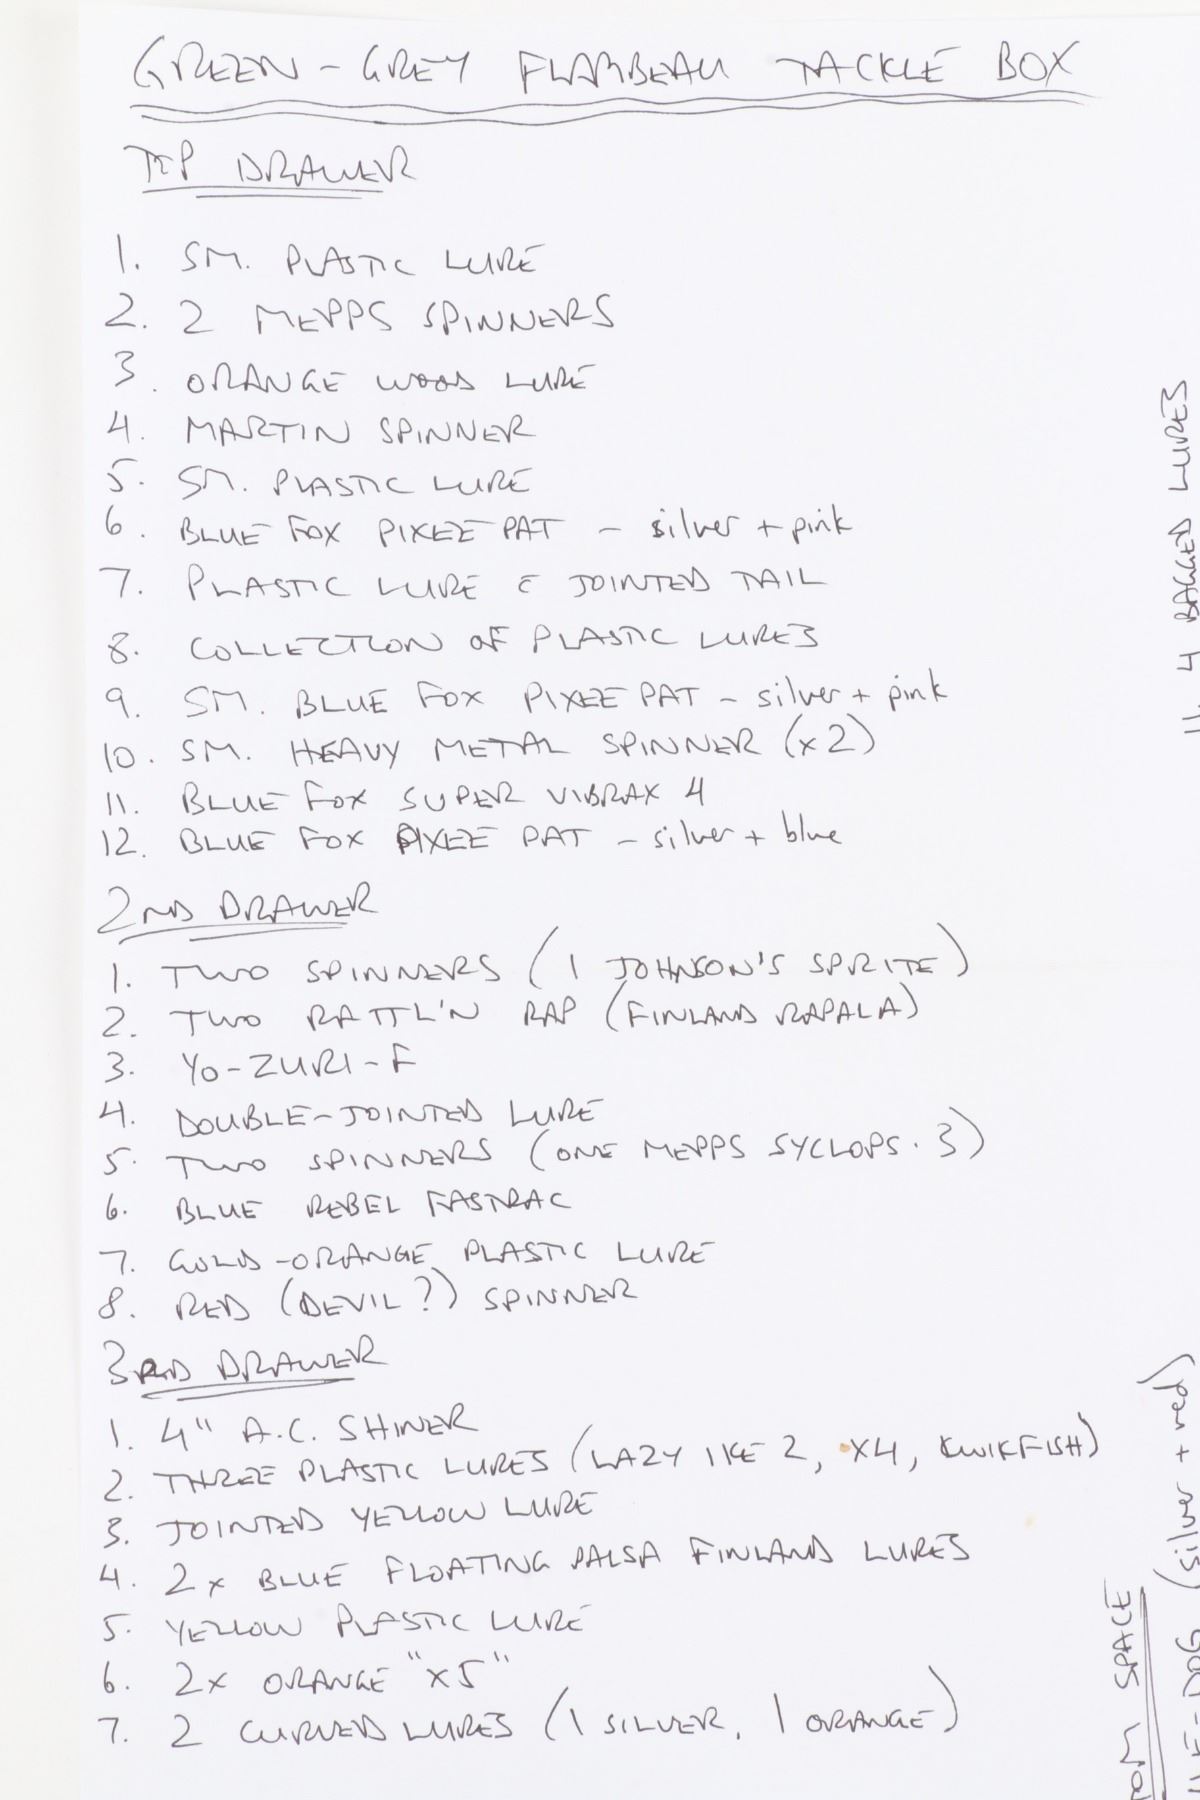 GREEN-GREY FLAMBEAU TACKLE BOX
TOP DRAWER
1. SM. PLASTIC LURE
2. 2 MEPPS SPINNERS
3. ORANGE WOOD LURE
4. MARTIN SPINNER
5. SM. PLASTIC LURE
6. BLUE FOX PIXEE PAT - silver + pink
7. PLASTIC LURE c JOINTED TAIL
8. COLLECTION OF PLASTIC LURES
9. SM. BLUE FOX PIXEE PAT - silver + pink
10. SM. HEAVY METAL SPINNER (x2)
11. BLUE FOX SUPER VIBRAX 4
12. BLUE FOX PIXEE PAT - silver + blue
2ND DRAWER
1. TWO SPINNERS (1 JOHNSON'S SPRITE)
2. TWO RATTL'N RAP (FINLAND RAPALA)
3. YO-ZURI-F
4. DOUBLE-JOINTED LURE
5. TWO SPINNERS (ONE MEPPS SYCLOPS. 3)
6. BLUE REBEL FASTRAC
7. GOLD-ORANGE PLASTIC LURE
8. RED (DEVIL?) SPINNER
3RD DRAWER
1. 4" A.C. SHINER
2. THREE PLASTIC LURES (LAZY IKE 2, X4, KWIKFISH)
3. JOINTED YELLOW LURE
4. 2x BLUE FLOATING PALSA FINLAND LURES
5. YELLOW PLASTIC LURE
6. 2x ORANGE "X5"
7. 2 CURVED LURES (1 SILVER, 1 ORANGE)
4 BAGGED LURES
SPACE
(silver + red)